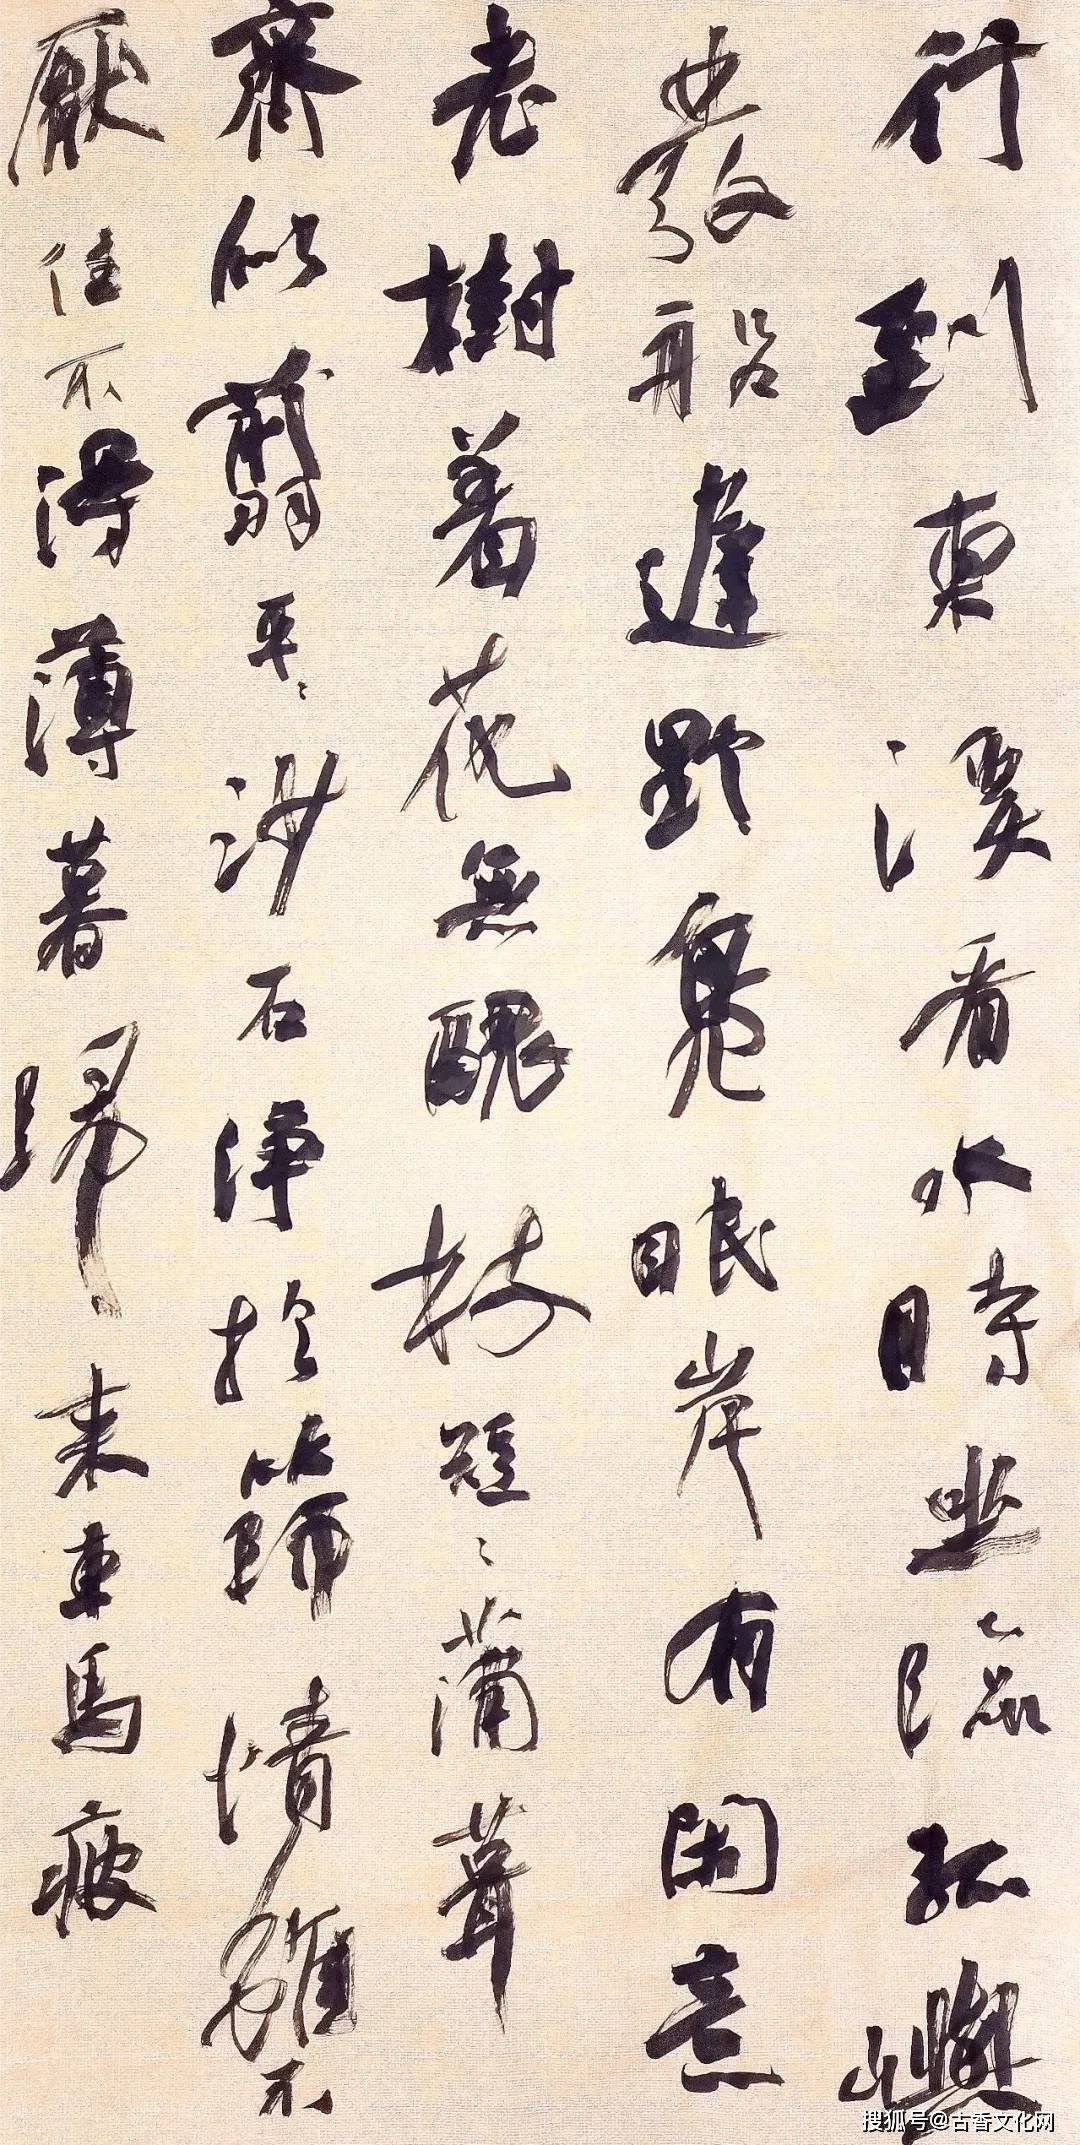 行到東溪看水時坐臨孤嶼
發船遲野鳧眠岸有閑意
老樹着花無醜枝短〻蒲茸
齊似翦平〻沙石淨於篩情雖不
厭住不得薄暮歸來車馬疲
搜狐号@古香文化网